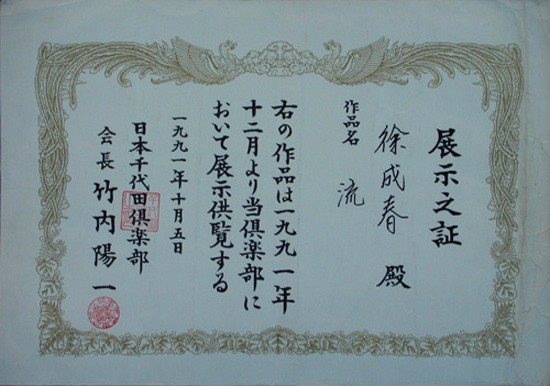 展示之証
徐成春 殿
作品名 流
右の作品は一九九一年
十二月より当倶楽部に
おいて展示供覧する
一九九一年十月五日
日本千代田倶楽部
会長 竹内陽一